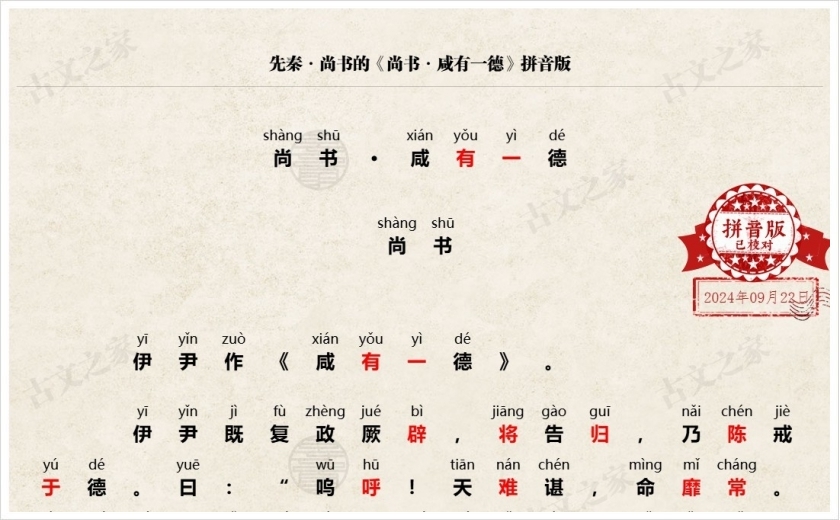 先秦·尚书的《尚书·咸有一德》拼音版
shàng shū xián yǒu yì dé
尚书·咸有一德
shàng shū
尚书
拼音版
已校对
2024年09月22日
yī yǐn zuò xián yǒu yì dé
伊尹作《咸有一德》。
yī yǐn jì fù zhèng jué bì jiāng gào guī nǎi chén jiè
伊尹既复政厥辟,将告归,乃陈戒
yú dé yuē wū hū tiān nán chén mìng mǐ cháng
于德。曰:“呜呼!天难谌,命靡常。
古文之家
古文之家
古文之家
古文之家
古文之家